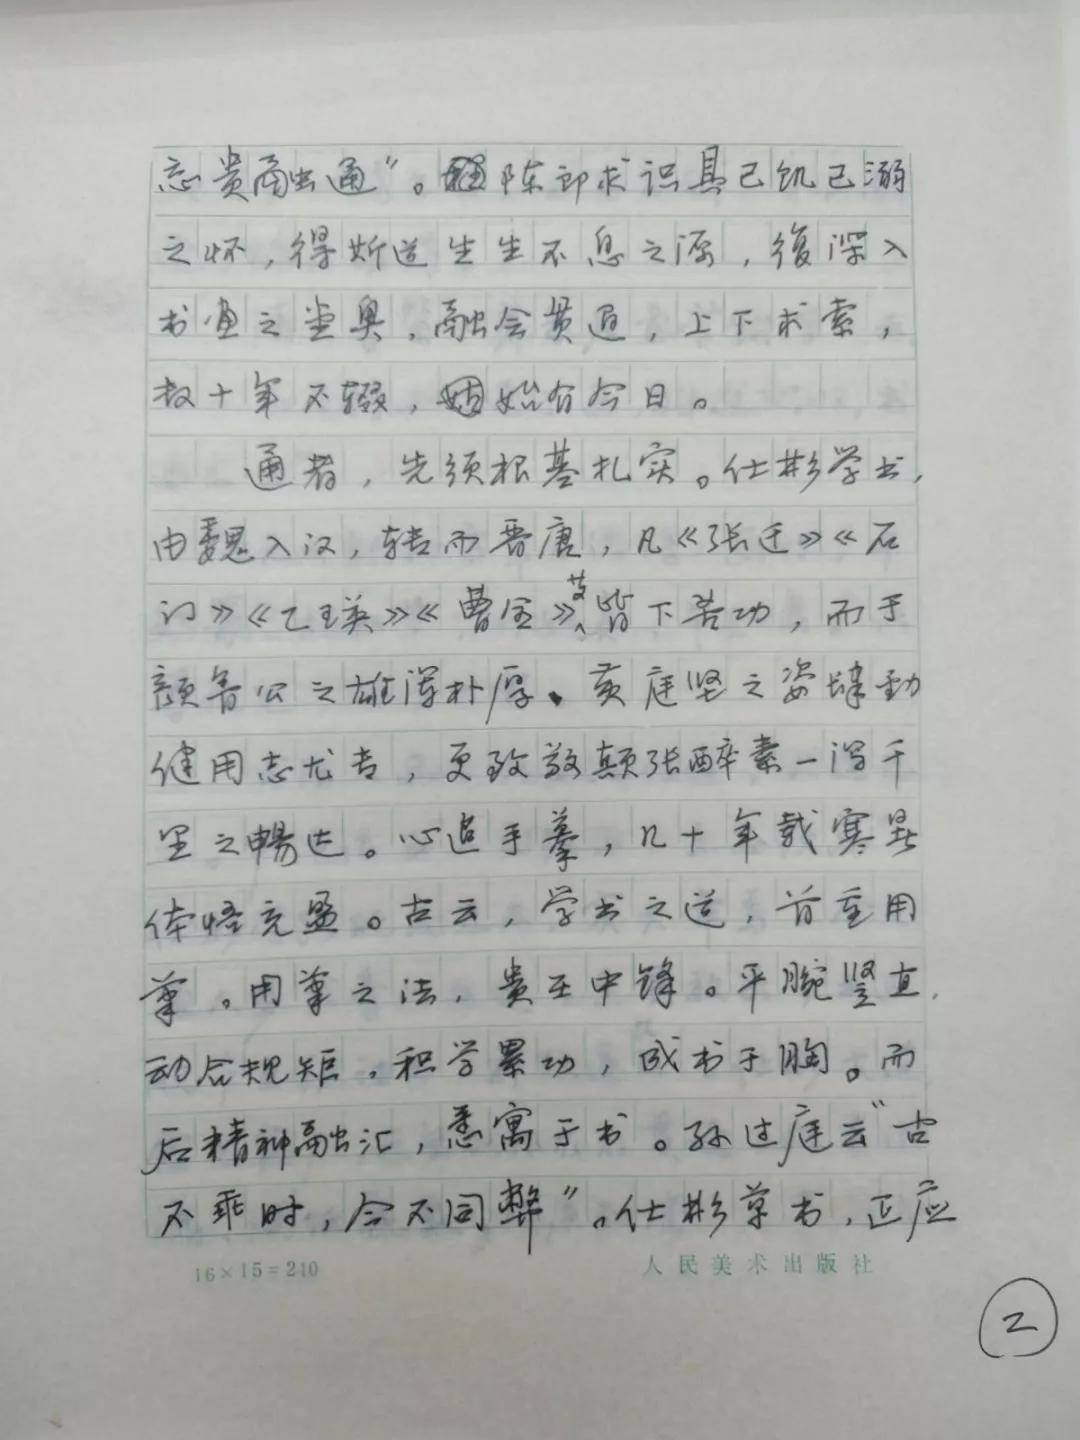 忘贵融通”。陈郎求识具己饥己溺
之怀，得斯道生生不息之源，復深入
书画之堂奥，融会贯通，上下求索，
数十年不辍，始有今日。
通者，先须根基扎实。仕彬学书，
由魏入汉，转而晋唐，凡《张迁》《石
门》《乙瑛》《曹全》等皆下苦功，而于
颜鲁公之雄浑朴厚、黄庭坚之姿肆動
健用志尤专，更致敬颠张醉素一泻千
里之暢达。心追手摹，几十年载寒暑
体悟充盈。古云，学书之道，首重用
筆。用筆之法，贵在中锋。平腕竖直，
动合规矩，积学累功，成书于胸。而
后精神融汇，悉寓于书。孙过庭云“古
不乖时，今不同弊”。仕彬草书，正应
16×15=240
人民美术出版社
2